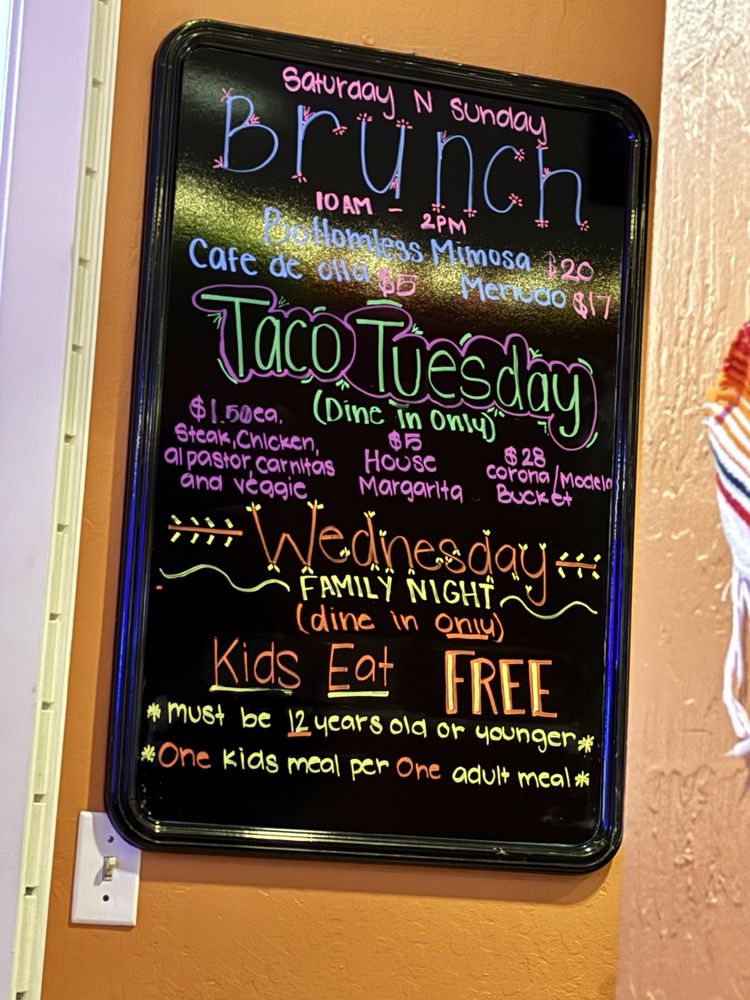 Saturday N Sunday
Brunch
10AM - 2PM
Bottomless Mimosa $20
Cafe de olla $5 Menudo $17
Taco Tuesday
(Dine in Only)
$1.50ea.
Steak, Chicken,
al pastor, carnitas
and veggie
$5
House
Margarita
$28
corona/Modelo
Bucket
Wednesday
FAMILY NIGHT
(dine in only)
Kids Eat FREE
*must be 12 years old or younger*
*One kids meal per One adult meal*